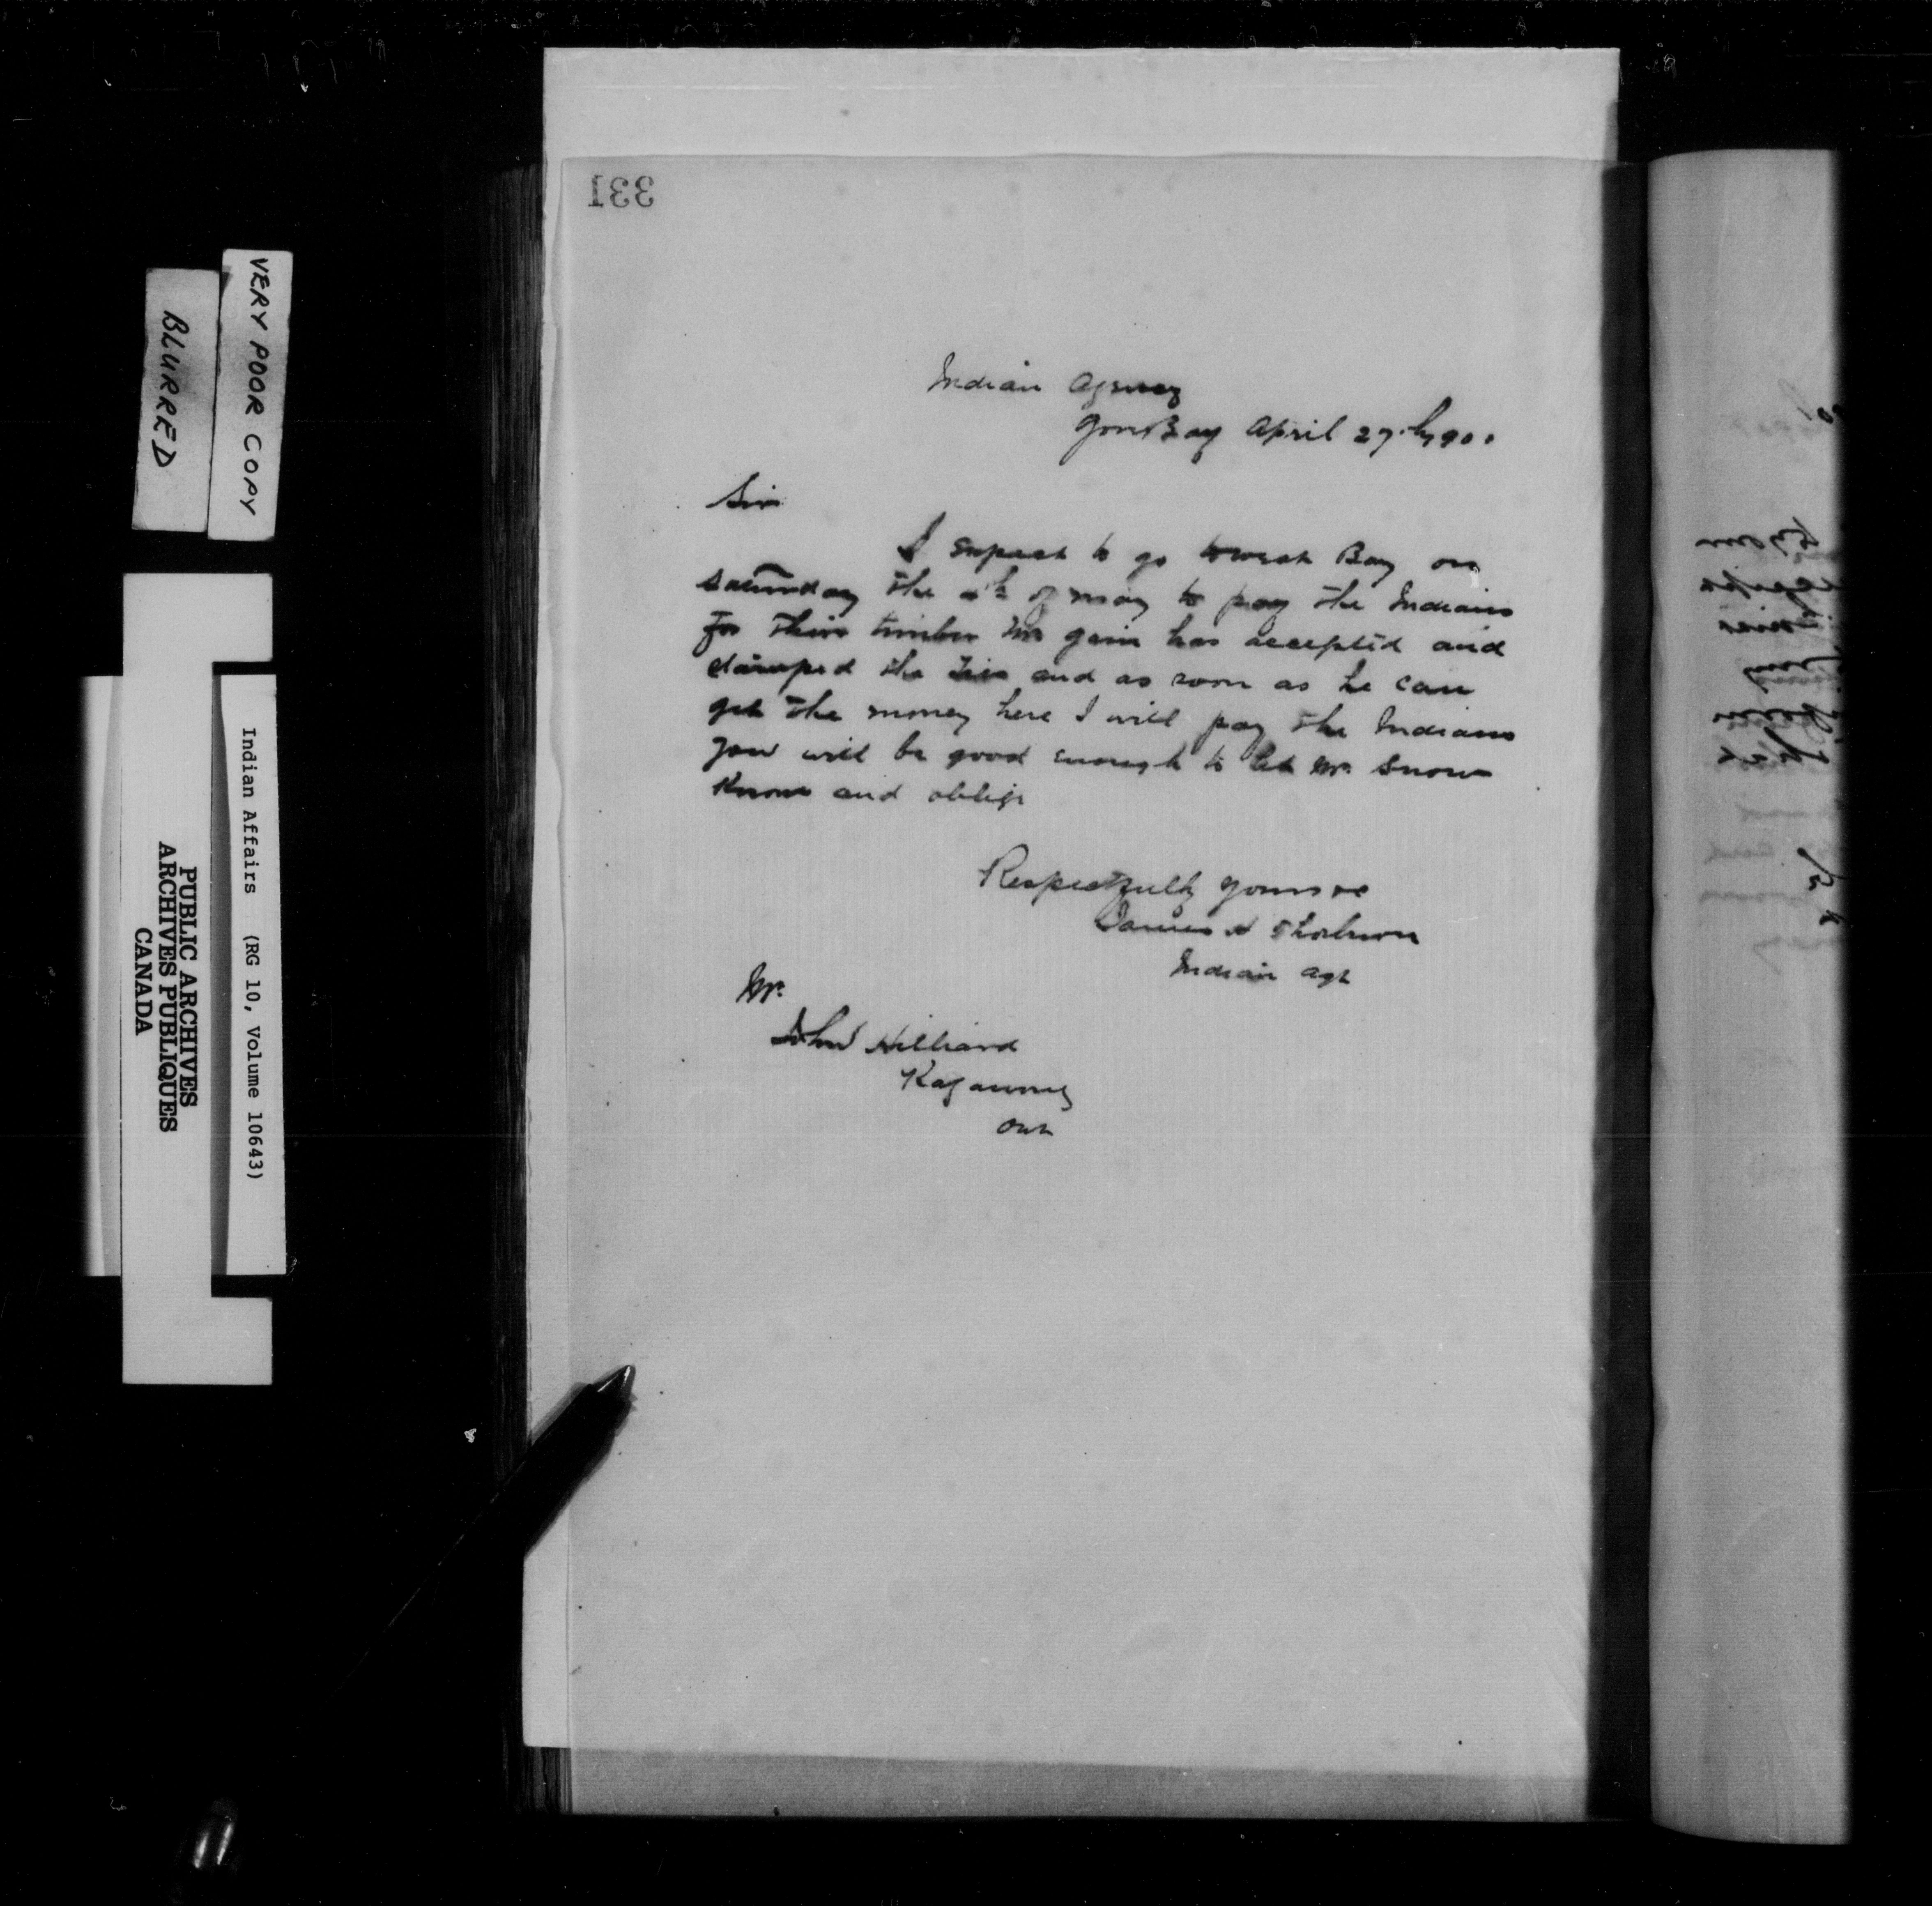 331
Indian Agency
Gore Bay April 27th 190
Sir
I expect to go to West Bay on
Saturday the 4th of May to pay the Indians
For their timber Mr has accepted and
stamped the ties and as soon as he can
get the money here I will pay the Indians
you will be good enough to let Mr Snow
Know and oblige
Respectfully yours
James H Thorburn
Indian Agt
Mr.
John Hilliard
Kagawong
Ont
VERY POOR COPY
BLURRED
Indian Affairs (RG 10, Volume 10643)
PUBLIC ARCHIVES
ARCHIVES PUBLIQUES
CANADA